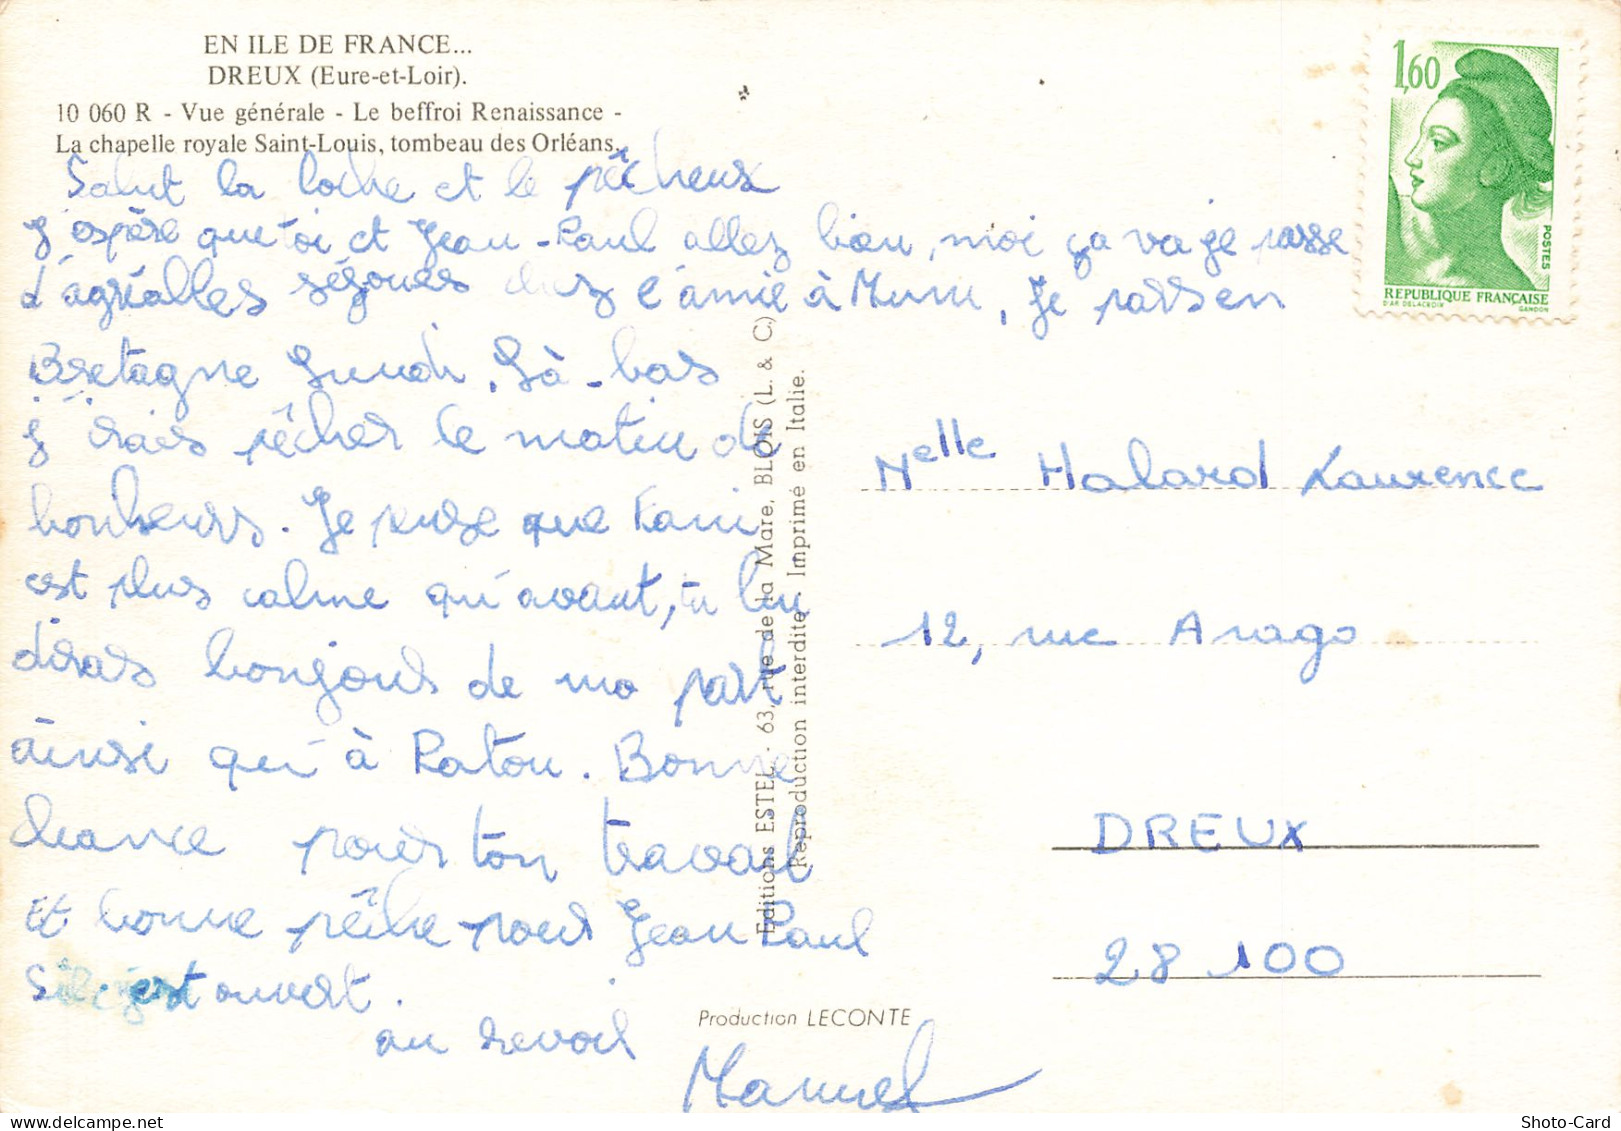 EN ILE DE FRANCE...
DREUX (Eure-et-Loir).
10 060 R - Vue générale - Le beffroi Renaissance -
La chapelle royale Saint-Louis, tombeau des Orléans.
Salut la loche et le pêcheux
J'espère que toi et Jean-Paul allez bien, moi ça va je passe
d'agréalles séjoues chez l'amie à Mumu, Je pars en
Bretagne Lundi, Là-bas
j'irais pêcher le matin de
bonheurs. Je pense que Fani
est plus calme qu'avant, tu lui
diras bonjours de ma part
ainsi qu'à Patou. Bonne
chance pours ton travail
Et bonne pêche pours Jean Paul
Si c'est ouvert.
au revoir
Manuel
Editions ESTEL - 63, rue de la Mare, BLOIS (L. & C)
Reproduction interdite - Imprimé en Italie.
Production LECONTE
1,60
POSTES
REPUBLIQUE FRANÇAISE
D'AP. DELACROIX GANDON
Melle Halard Laurence
12, rue Arago
DREUX
28 100
Shoto-Card